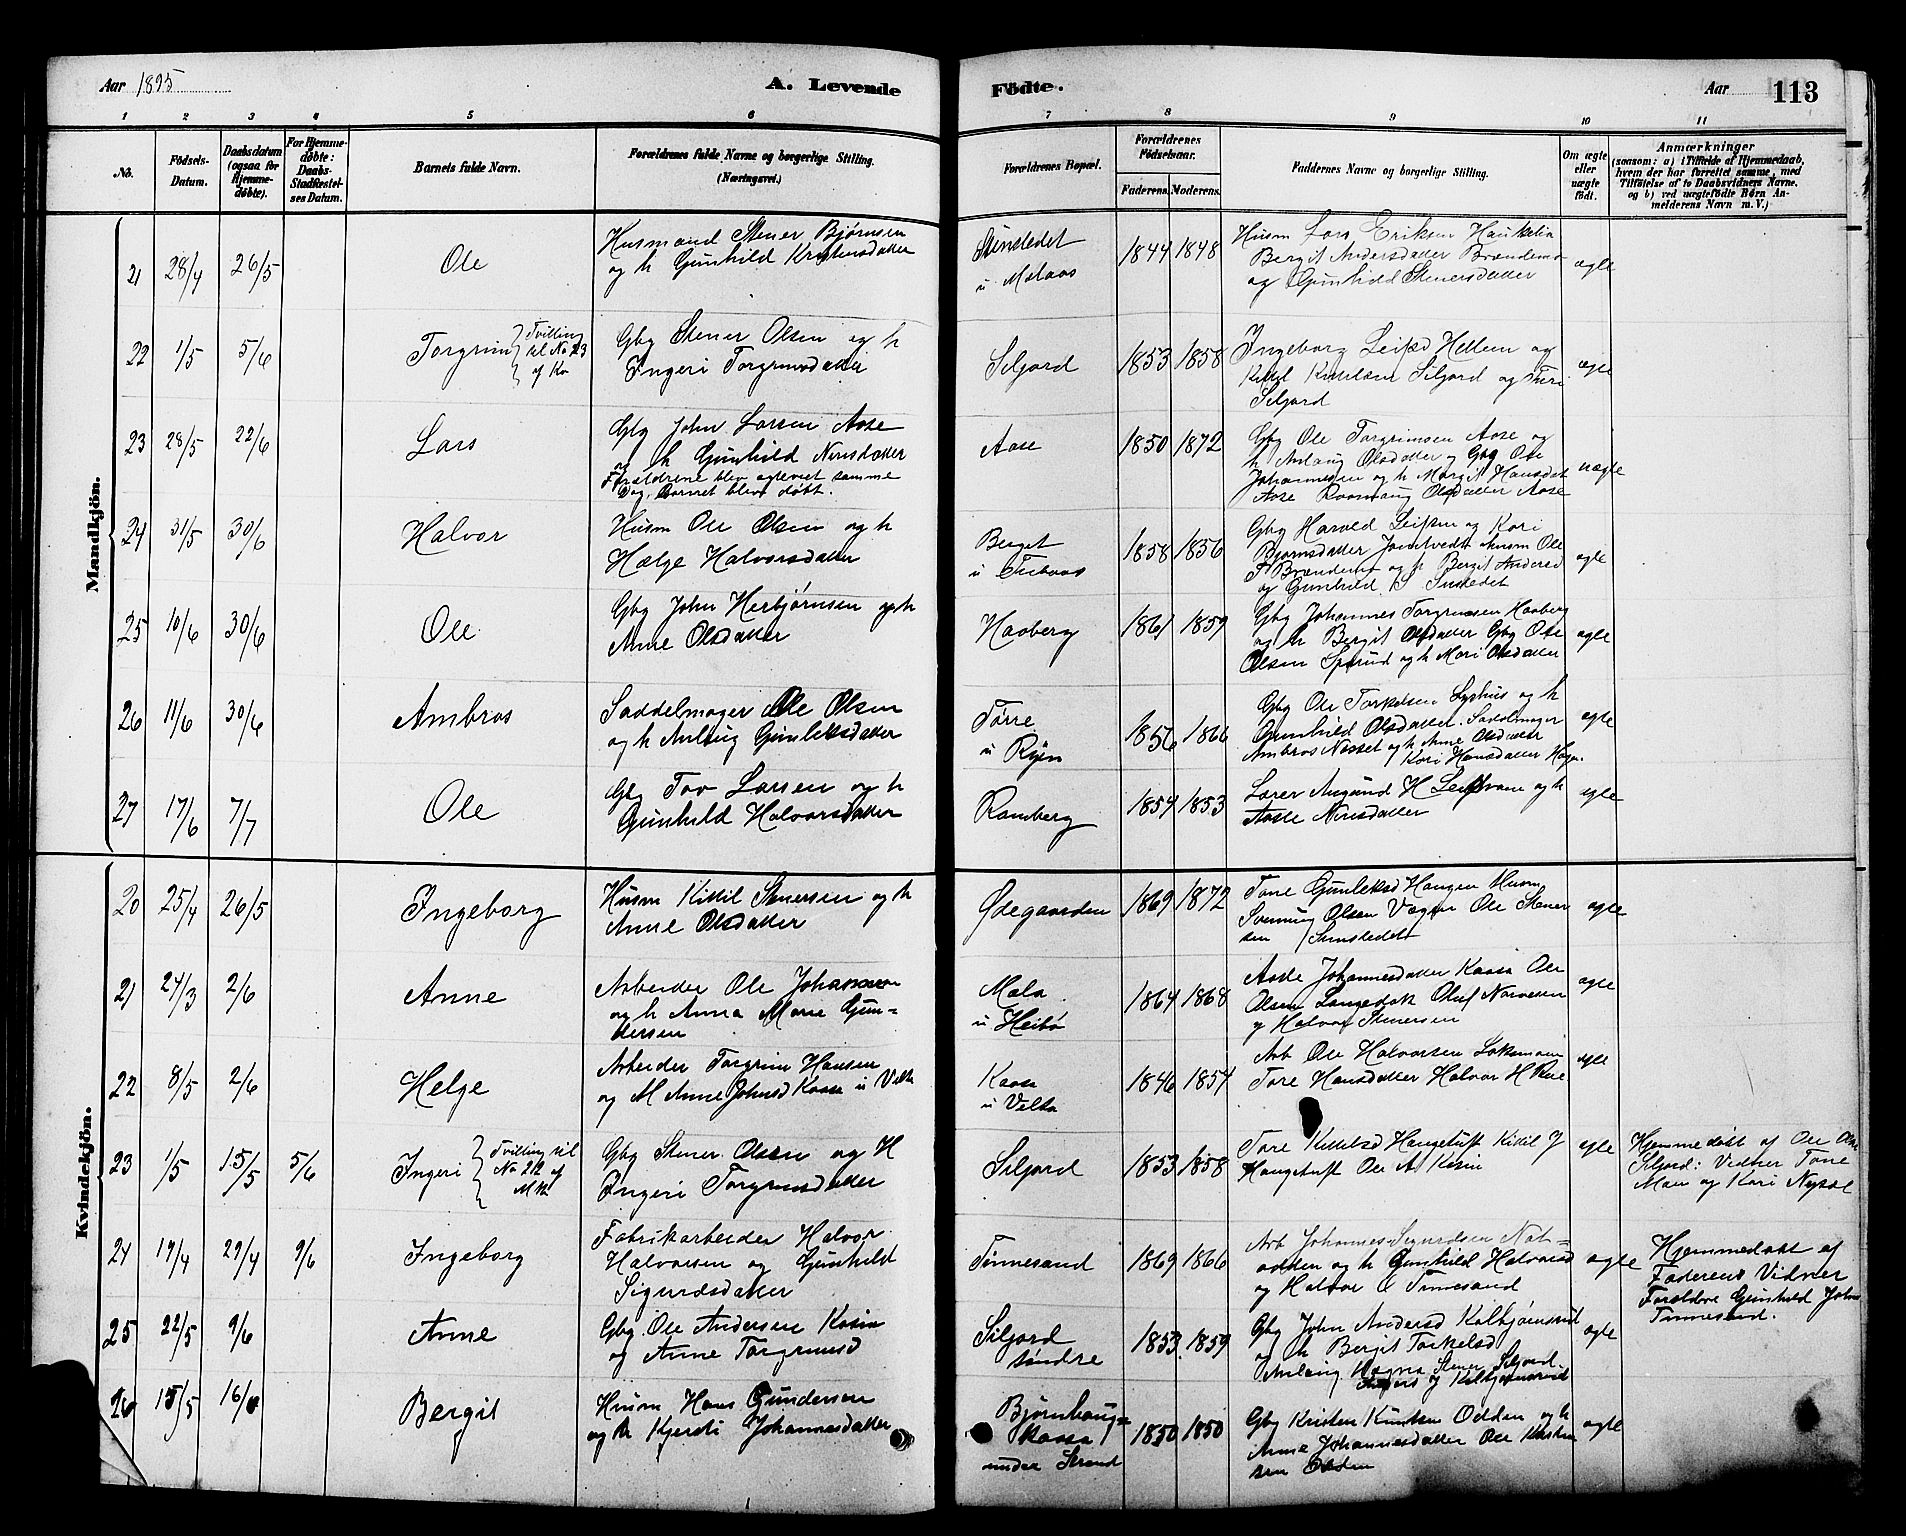 Aar 1895
A. Levende
Födte.
Aar
113
1 2 3 4 5 6 7 8 9 10 11
No.
Födsels-
Datum.
Daabsdatum
(ogsaa for
Hjemme-
döbte).
For Hjemme-
döbte:
Daabs-
Stadfæstel-
ses Datum.
Barnets fulde Navn.
Forældrenes fulde Navne og borgerlige Stilling.
(Næringsvei.)
Forældrenes Bopæl.
Forældrenes
Födselsaar.
Faderens.
Moderens.
Faddernes Navne og borgerlige Stilling.
Om ægte
eller
uægte
födt.
Anmærkninger
(saasom: a) i Tilfælde af Hjemmedaab,
hvem der har forrettet samme, med
Tilföielse af to Daabsvidners Navne,
og b) ved uægtefödte Börn An-
melderens Navn m. V.)
Mandkjön.
21 28/4 26/5 Ole
Husmand Stener Bjørnsen
og h Gunhild Kristensdatter
u Molaas
1844 1848
Husm Lars Eriksen Haukelia
Bergit Andersdatter
og Gunhild Stenersdatter
ægte
22 1/5 5/6 Torgrim
Tvilling
til No 23
af Kv
Gbg Stener Olsen og h
Ingeri Torgrimsdatter
Siljord
1853 1858
Ingeborg Leifsd Hellem og
Kittil Kittilsen Siljord og Turi
Siljord
ægte
23 28/5 22/6 Lars
Gbg John Larsen Aase
og h Gunhild Nirisdatter
Forældrene blev ægteviet samme
Dag, Barnet blev døbt.
Aase
1850 1872
Gbg Ole Torgrimsen Aase og
h Anlaug Olsdatter og Gbg Ole
Johannesen og h Margit Hansdat
Aase Olsdatter Aase
uægte
24 31/5 30/6 Halvor
Husm Ole Olsen og h
Hælge Halvorsdatter
Berget
1858 1856
Gbg Harald Leifsen og Kari
Bjørnsdatter Husm Ole
og h Bergit Andersd
og Gunhild S
ægte
25 10/6 30/6 Ole
Gbg John Herbjørnsen og h
Anne Olsdatter
Haaberg
1861 1859
Gbg Johannes Torgrimsen Haaberg
og h Bergit Olsdatter Gbg Ole
Olsen og h Mari Olsdatter
ægte
26 11/6 30/6 Ambros
Saddelmager Ole Olsen
og h Anlaug Gunleksdatter
Tørre
u Ryen
1856 1866
Gbg Ole Torkelsen Lyshus og h
Gunhild Olsdatter. Saddelmager
Ambros Næsset og h Anne Olsdatter
Kari Hansdatter
ægte
27 17/6 7/7 Ole
Gbg Tov Larsen og h
Gunhild Halvorsdatter
Ramberg
1854 1853
Lærer Amund H og h
Aasle Nirisdatter
ægte
Kvindekjön.
20 25/4 26/5 Ingeborg
Husm Kittil Stenersen og h
Anne Olsdatter
Ødegaarden
1869 1872
Tone Gunleksd Haugen Husm
Svenung Olsen Ole Stener
sen
ægte
21 27/3 2/6 Anne
Arbeider Ole Johannesen
og h Anna Marie Gun-
dersen
Mala
u Heibø
1864 1868
Aasle Johannesdatter Kaasa Ole
Olsen Langedok Oluf
og Halvor Stenersen
ægte
22 8/5 2/6 Helge
Arbeider Torgrim Hansen
og M Anne Johnsd Kaasa u Velta
Kaasa
u Velta
1846 1854
Arb Ole Halvorsen
Tore Hansdatter Halvor H
ægte
23 1/5 15/5 5/6 Ingeri
Tvilling til
No 22 af
Mk
Gbg Stener Olsen og H
Ingeri Torgrimsdatter
Siljord
1853 1858
Tore Kittilsd Haugetuft Kittil J
Haugetuft Ole A Kasin
ægte
Hjemmedøbt af Ole Olsen
Siljord: Vidner Tone
Moen og Kari
24 17/4 29/4 9/6 Ingeborg
Fabrikarbeider Halvor
Halvorsen og Gunhild
Sigurdsdatter
Tinnesand
1869 1866
Arb Johannes Sigurdsen Not-
odden og h Gunhild Halvorsd
og Halvor Tinnesand
ægte
Hjemmedøbt af
Faderens Vidner
Forældre Gunhild Johns
Tinnesand.
25 22/5 9/6 Anne
Gbg. Ole Andersen Kasin
og Anne Torgrimsd
Siljord
søndre
1853 1859
Gbg John Andersd Kolbjørnsrud
og h Bergit Torkelsd
Anlaug Stener Siljord
ægte
26 15/5 16/6 Bergit
Husm Hans Gundersen
og h Kjersti Johannesdatter
Bjørnhaug-
kaasa
under Strand
1850 1850
Gbg Kristen Knutsen Odden og h
Anne Johannesdatter Ole Kristen
sen Odden
ægte